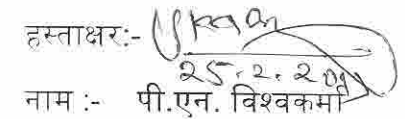 हस्ताक्षर:-
25.2.20
नाम :- पी.एन. विश्वकर्मा